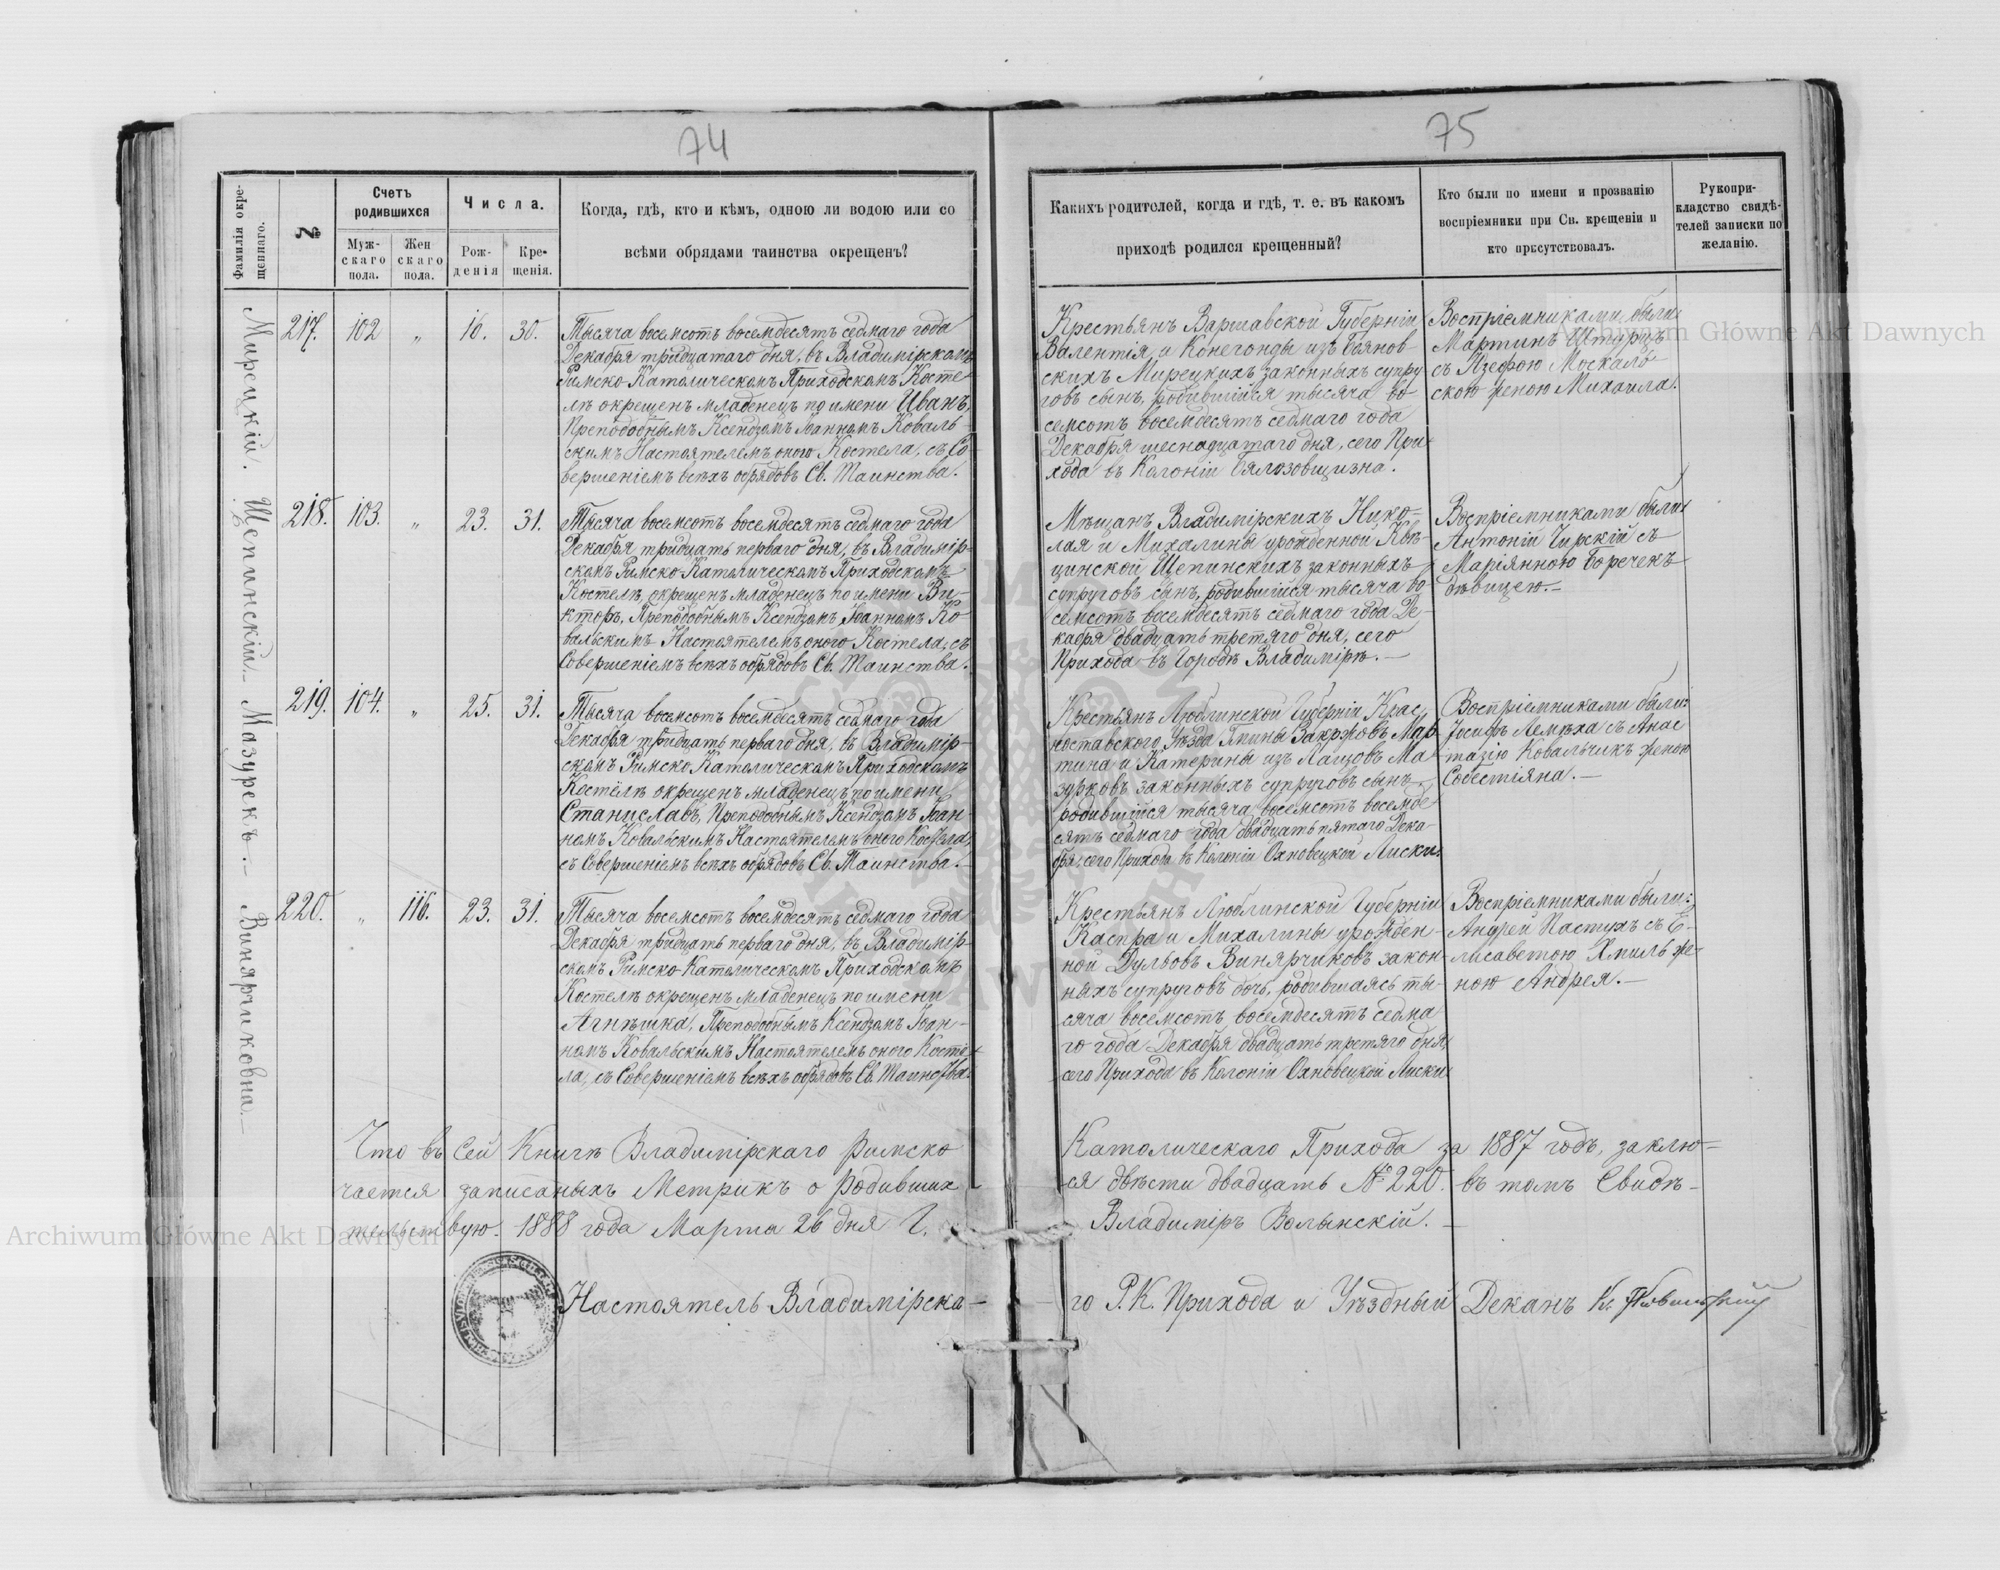 74
75
Фамилія окре-
щеннаго.
№
Счетъ
родившихся
Муж-
скаго
пола.
Жен
скаго
пола.
Числа.
Рож-
денія
Кре-
щенія.
Когда, гдѣ, кто и кѣмъ, одною ли водою или со
всѣми обрядами таинства окрещенъ?
Какихъ родителей, когда и гдѣ, т. е. въ какомъ
приходѣ родился крещенный?
Кто были по имени и прозванію
воспріемники при Св. крещеніи и
кто присутствовалъ.
Рукопри-
кладство свидѣ-
телей записки по
желанію.
Мирецкій.
217. 102 „ 16. 30.
Тысяча восемсотъ восемдесятъ седмаго года
Декабря тридцатаго дня, въ Владимірскомъ
Римско-Католическомъ Приходскомъ Косте
лѣ окрещенъ младенецъ по имени Иванъ,
Преподобнымъ Ксендзомъ Іоанномъ Коваль-
скимъ Настоятелемъ оного Костела, съ Со-
вершеніемъ всѣхъ обрядовъ Св. Таинства.
Крестьянъ Варшавской Губерніи
Валентія и Конегонды изъ Боянов-
скихъ Мирецкихъ законныхъ супру
говъ сынъ, родившійся тысяча во
семсотъ восемдесятъ седмаго года
Декабря шеснадцатаго дня, сего При-
хода въ Колоніи Бялозовщизна.
Воспріемниками были
Мартинъ Штурцъ
съ Юзефою Москаль-
скою женою Михаила.
Щепинскій
218. 103. „ 23. 31.
Тысяча восемсотъ восемдесятъ седмаго года
Декабря тридцать перваго дня, въ Владимір-
скомъ Римско-Католическомъ Приходскомъ
Костелѣ, окрещенъ младенецъ по имени Ви-
кторъ, Преподобнымъ Ксендзомъ Іоанномъ Ко-
вальскимъ Настоятелемъ оного Костела, съ
Совершеніемъ всѣхъ обрядовъ Св. Таинства.
Мѣщанъ Владимірскихъ Нико-
лая и Михалины урожденной Кве-
цинской Щепинскихъ законныхъ
супруговъ сынъ, родившійся тысяча во
семсотъ восемдесятъ седмаго года Де-
кабря двадцать третяго дня, сего
Прихода въ Городѣ Владимірѣ.—
Воспріемниками были
Антоній Чирскій съ
Маріянною Боречекъ
дѣвицею.—
Мазурекъ.—
219. 104. „ 25. 31.
Тысяча восемсотъ восемдесятъ седмаго года
Декабря тридцать перваго дня, въ Владимір-
скомъ Римско-Католическомъ Приходскомъ
Костелѣ окрещенъ младенецъ по имени
Станиславъ, Преподобнымъ Ксендзомъ Іоан-
номъ Ковальскимъ Настоятелемъ оного Костела,
съ Совершеніемъ всѣхъ обрядовъ Св. Таинства.—
Крестьянъ Люблинской Губерніи Крас
ноставского Уѣзда Гмины Закржовъ Мар
тина и Катерины изъ Лацовъ Ма-
зурковъ законныхъ супруговъ сынъ
родившійся тысяча восемсотъ восемде
сятъ седмаго года двадцать пятаго Дека-
бря, сего Прихода въ Колоніи Охновецкой Лиски.
Воспріемниками были:
Іосифъ Лемѣха съ Анас
тазію Ковальчикъ женою
Собестіяна.—
Винярчиковна.—
220. „ 116. 23. 31.
Тысяча восемсотъ восемдесятъ седмаго года
Декабря тридцать перваго дня, въ Владимір-
скомъ Римско-Католическомъ Приходскомъ
Костелѣ окрещенъ младенецъ по имени
Агнѣшка, Преподобнымъ Ксендзомъ Іоан-
номъ Ковальскимъ Настоятелемъ оного Косте-
ла, съ Совершеніемъ всѣхъ обрядовъ Св. Таинства.
Крестьянъ Люблинской Губерніи
Каспра и Михалины урожден-
ной Дульбовъ Винярчиковъ закон-
ныхъ супруговъ дочь, родившаясь ты-
сяча восемсотъ восемдесятъ седма
го года Декабря двадцать третяго дня,
сего Прихода въ Колоніи Охновецкой Лиски.
Воспріемниками были:
Андрей Пастухъ съ Е-
лисаветою Хмиль же-
ною Андрея.—
Что въ Сей Книгѣ Владимірскаго Римско Католическаго Прихода за 1887 годъ, заклю-
чается записаныхъ Метрикъ о Родивших ся двѣсти двадцать № 220. въ томъ Свидѣ-
тельствую. 1888 года Марта 26 дня Г. Владиміръ Волынскій.—
Настоятель Владимірска- го Р. К. Прихода и Уѣздный Деканъ
Archiwum Główne Akt Dawnych
Archiwum Główne Akt Dawnych